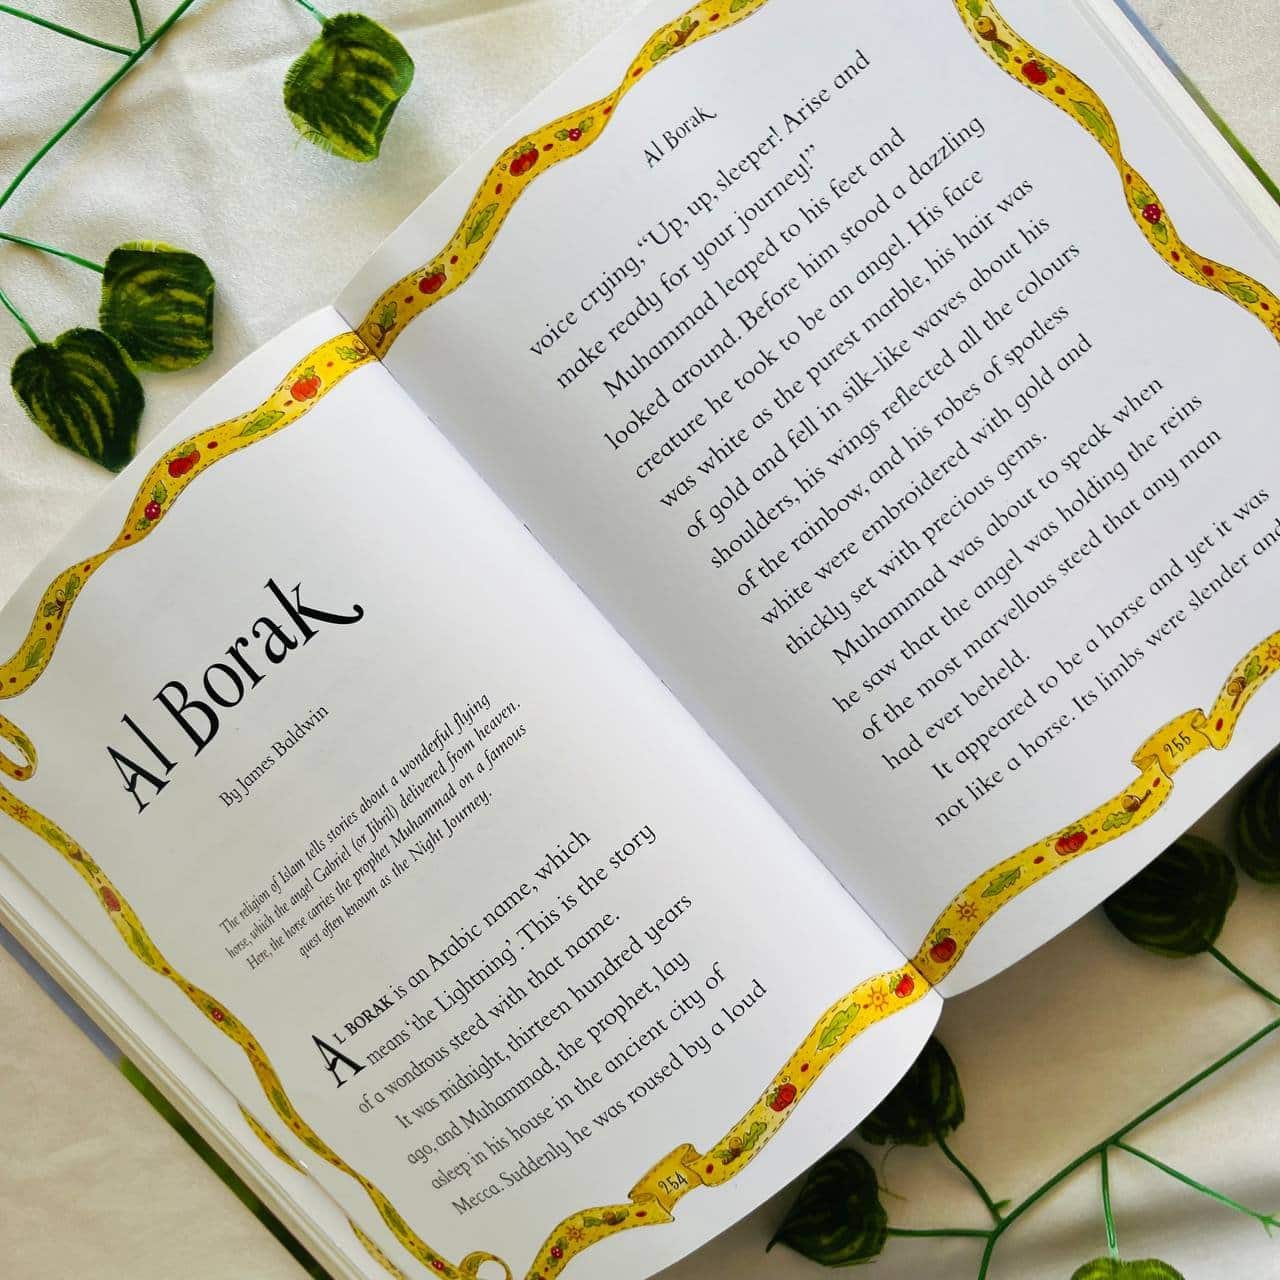 Al Borak
By James Baldwin
The religion of Islam tells stories about a wonderful flying
horse, which the angel Gabriel (or Jibril) delivered from heaven.
Here, the horse carries the prophet Muhammad on a famous
quest often known as the Night Journey.
AL BORAK is an Arabic name, which
means ‘the Lightning’. This is the story
of a wondrous steed with that name.
It was midnight, thirteen hundred years
ago, and Muhammad, the prophet, lay
asleep in his house in the ancient city of
Mecca. Suddenly he was roused by a loud
254
Al Borak
voice crying, “Up, up, sleeper! Arise and
make ready for your journey!”
Muhammad leaped to his feet and
looked around. Before him stood a dazzling
creature he took to be an angel. His face
was white as the purest marble, his hair was
of gold and fell in silk-like waves about his
shoulders, his wings reflected all the colours
of the rainbow, and his robes of spotless
white were embroidered with gold and
thickly set with precious gems.
Muhammad was about to speak when
he saw that the angel was holding the reins
of the most marvellous steed that any man
had ever beheld.
It appeared to be a horse and yet it was
not like a horse. Its limbs were slender and
255